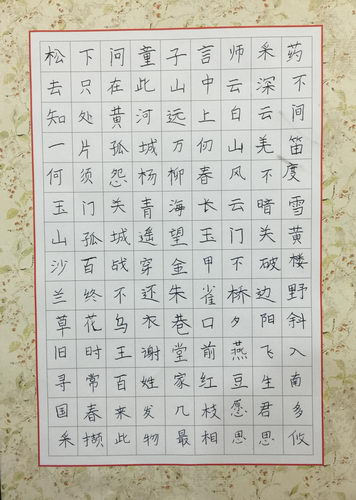 松下问童子言师采药
去只在此山中云深不
知处黄河远上白云间
一片孤城万仞山羌笛
何须怨杨柳春风不度
玉门关青海长云暗雪
山孤城遥望玉门关黄
沙百战穿金甲不破楼
兰终不还朱雀桥边野
草花乌衣巷口夕阳斜
旧时王谢堂前燕飞入
寻常百姓家红豆生南
国春来发几枝愿君多
采撷此物最相思思攸